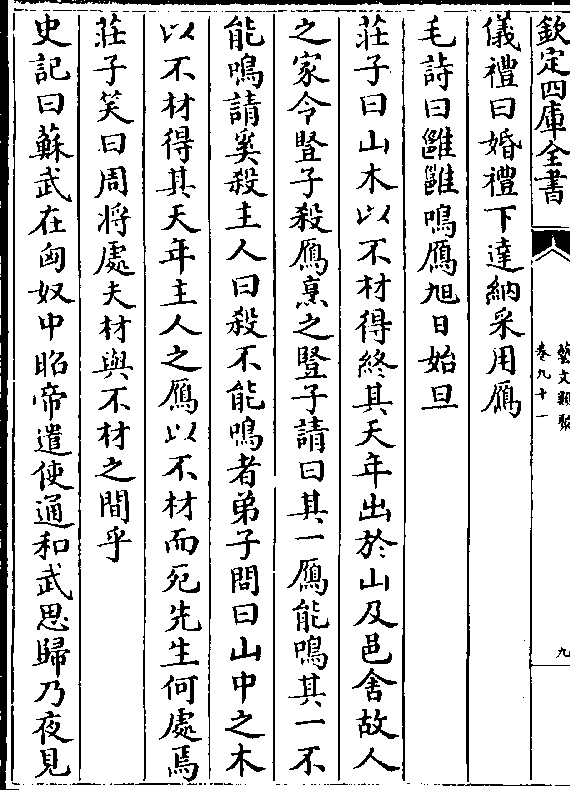 欽定四庫全書
藝文類聚
卷九十一
九
儀禮曰婚禮下達納采用鴈
毛詩曰雝雝鳴鴈旭日始旦
莊子曰山木以不材得終其天年出於山及邑舍故人
之家令豎子殺鴈烹之豎子請曰其一鴈能鳴其一不
能鳴請奚殺主人曰殺不能鳴者弟子問曰山中之木
以不材得其天年主人之鴈以不材而死先生何處焉
莊子笑曰周将處夫材與不材之間乎
史記曰蘇武在匈奴中昭帝遣使通和武思歸乃夜見